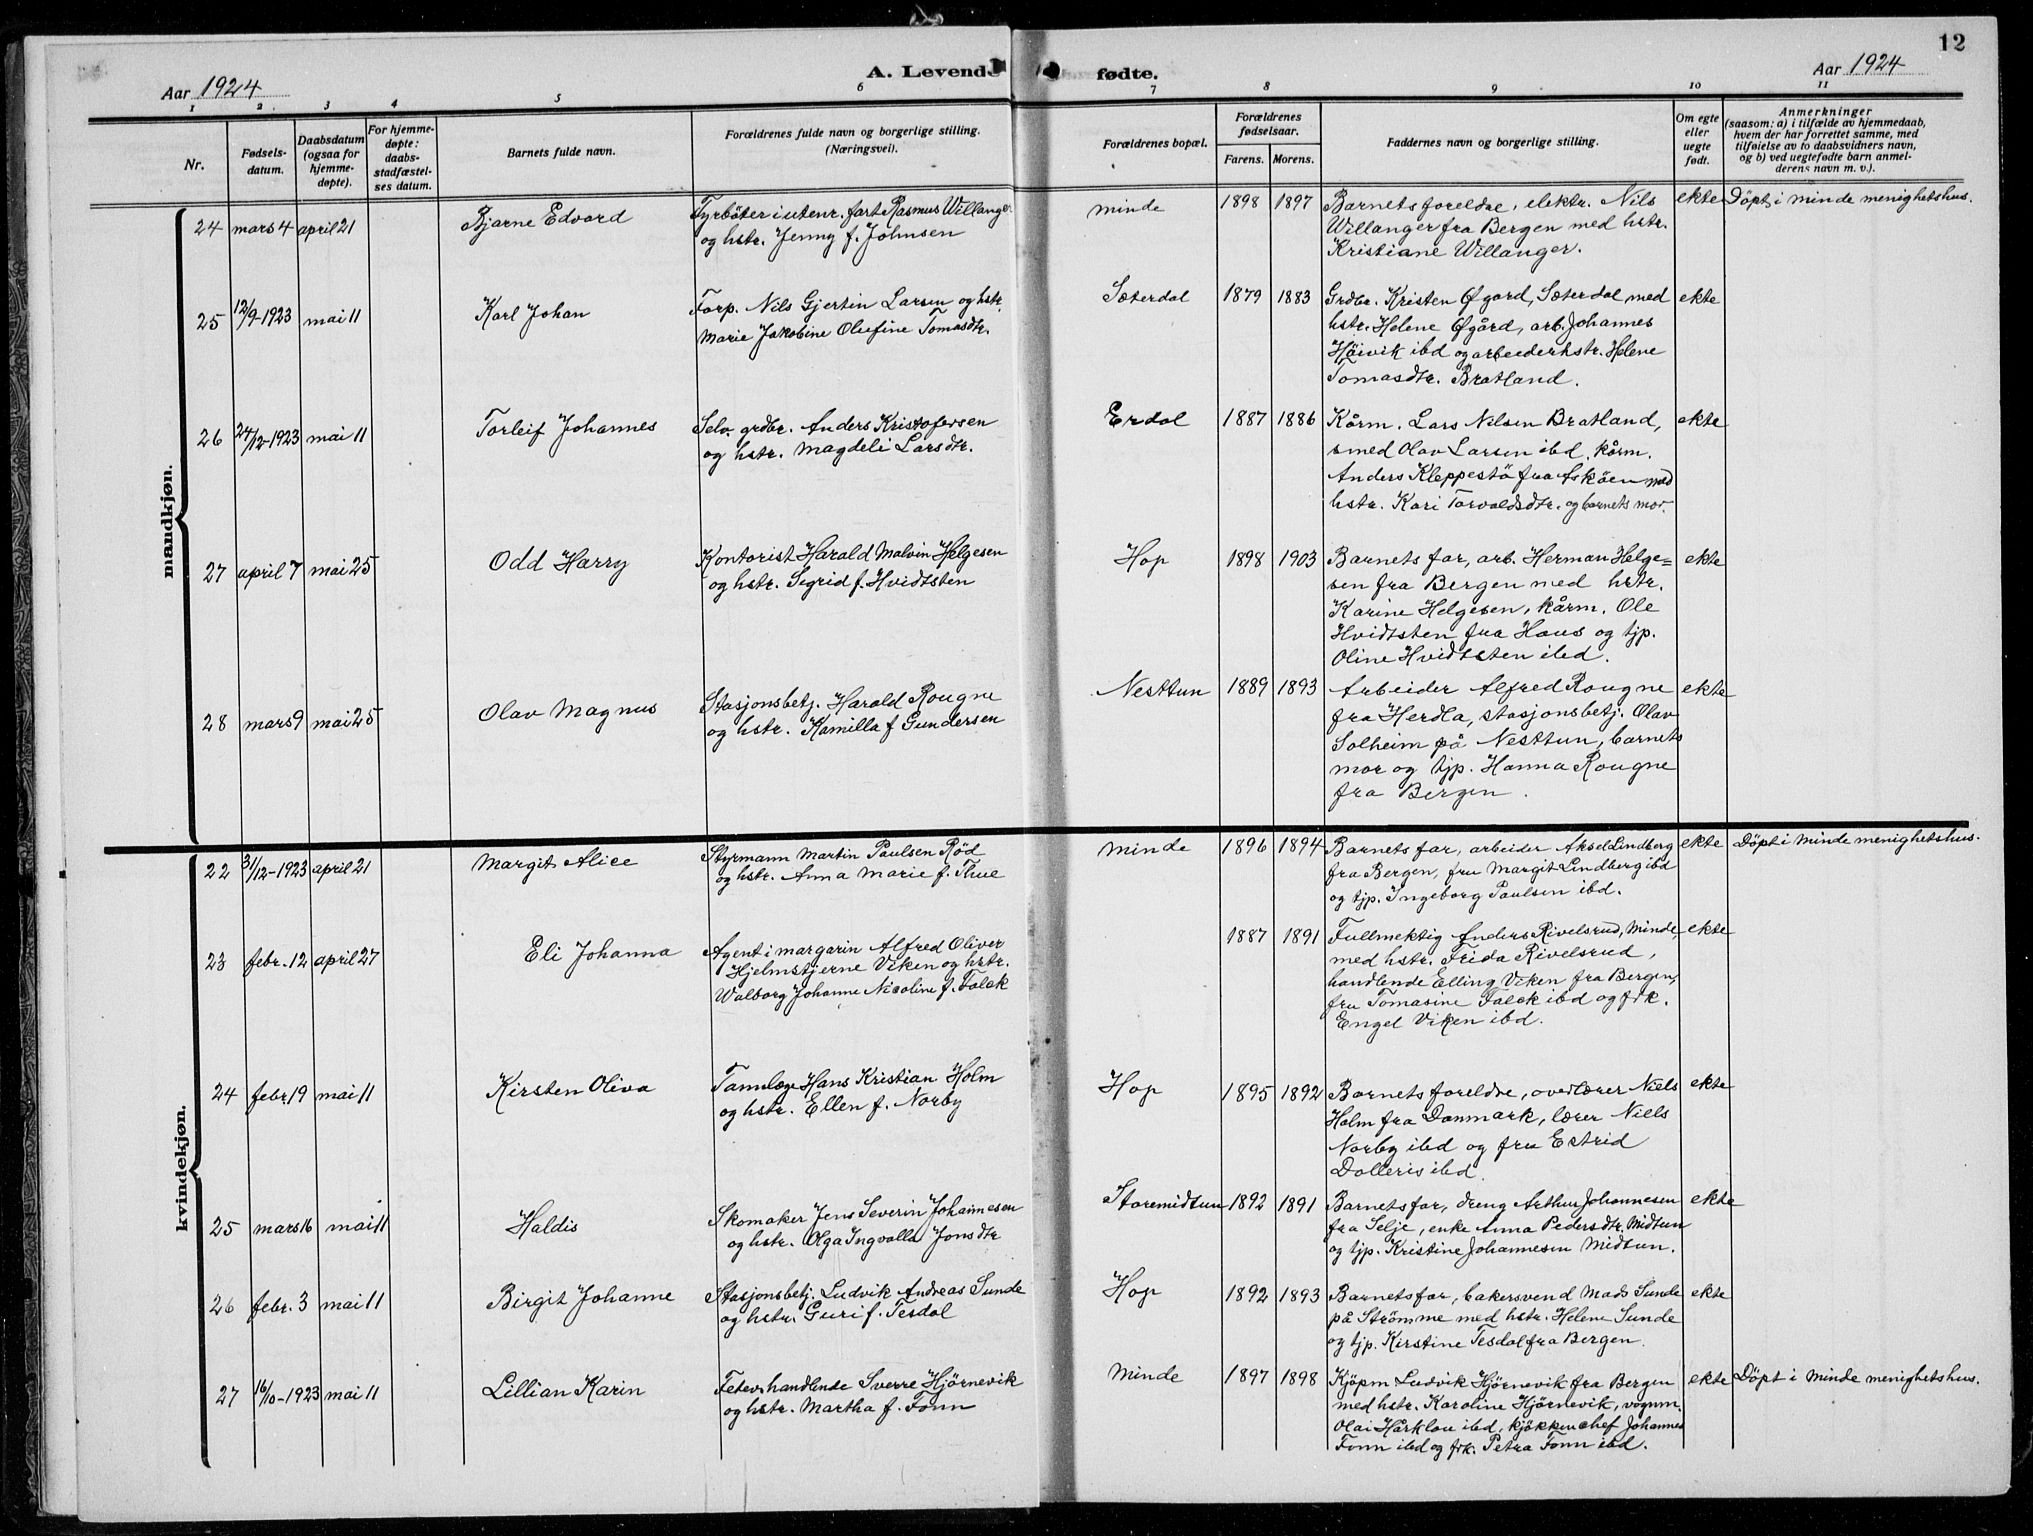 12
Aar 1924
A. Levende fødte.
Aar 1924
1 2 3 4 5 6 7 8 9 10 11
Nr.
Fødsels-
datum.
Daabsdatum
(ogsaa for
hjemme-
døpte).
For hjemme-
døpte:
daabs-
stadfæstel-
ses datum.
Barnets fulde navn.
Forældrenes fulde navn og borgerlige stilling.
(Næringsvei).
Forældrenes bopæl.
Forældrenes
fødselsaar.
Farens. Morens.
Faddernes navn og borgerlige stilling.
Om egte
eller
uegte
født.
Anmerkninger
(saasom: a) i tilfælde av hjemmedaab,
hvem der har forrettet samme, med
tilføielse av to daabsvidners navn,
og b) ved uegtefødte barn anmel-
derens navn m. v.).
mandkjøn.
24 mars 4 april 21 Bjarne Edvard
Fyrböter i utenr. fart Rasmus Willanger
og hstr. Jenny f. Johnsen
Minde 1898 1897
Barnets foreldre, elektr. Nils
Willanger fra Bergen med hstr.
Kristiane Willanger.
ekte Döpt i Minde menighetshus.
25 12/9-1923 mai 11 Karl Johan
Forp. Nils Gjertin Larsen og hstr.
Marie Jakobine Olufine Tomasdtr.
Sæterdal 1879 1883
Grdbr. Kristen Øgard, Sæterdal med
hstr. Helene Øgård, arb. Johannes
Höivik ibd og arbeiderhstr. Helene
Tomasdtr. Bratland.
ekte
26 24/12-1923 mai 11 Torleif Johannes
Selv. grdbr. Anders Kristofersen
og hstr. Magdeli Larsdtr.
Erdal 1887 1886
Kårm. Lars Nilsen Bratland,
smed Olav Larsen ibd. kårm.
Anders Kleppestö fra Asköen med
hstr. Kari Torvaldsdtr. og barnets mor.
ekte
27 april 7 mai 25 Odd Harry
Kontorist Harald Malvin Helgesen
og hstr. Sigrid f. Hvidtsten
Hop 1898 1903
Barnets far, arb. Herman Helge=
sen fra Bergen med hstr.
Karine Helgesen, kårm. Ole
Hvidtsten fra Haus og tjp.
Oline Hvidtsten ibd.
ekte
28 mars 9 mai 25 Olav Magnus
Stasjonsbetj. Harald Rougne
og hstr. Kamilla f Gundersen
Nesttun 1889 1893
Arbeider Alfred Rougne
fra Herdla, stasjonsbetj. Olav
Solheim på Nesttun, barnets
mor og tjp. Hanna Rougne
fra Bergen.
ekte
kvindekjøn.
22 31/12-1923 april 21 Margit Alice
Styrmann Martin Paulsen Röd
og hstr. Anna Marie f. Thue
Minde 1896 1894
Barnets far, arbeider Aksel Lindberg
fra Bergen, fru Margit Lindberg ibd
og tjp. Ingeborg Paulsen ibd.
ekte Döpt i Minde menighetshus.
23 febr. 12 april 27 Eli Johanna
Agent i margarin Alfred Oliver
Hjelmstjerne Viken og hstr.
Walborg Johanne Nicoline f. Falck
1887 1891
Fullmektig Anders Rivelsrud, Minde,
med hstr. Frida Rivelsrud,
handlende Elling Viken fra Bergen,
fru Tomasine Falck ibd og frk.
Engel Viken ibd.
ekte
24 febr. 19 mai 11 Kirsten Oliva
Tannlæge Hans Kristian Holm
og hstr. Ellen f. Norby
Hop 1895 1892
Barnets foreldre, overlærer Niels
Holm fra Danmark, lærer Niels
Norby ibd og fru Estrid
Dolleris ibd.
ekte
25 mars 16 mai 11 Haldis
Skomaker Jens Severin Johannesen
og hstr. Olga Ingvalla Jonsdtr
Storemidtun 1892 1891
Barnets far, dreng Arthur Johannesen
fra Selje, enke Anna Pedersdtr. Midtun
og tjp. Kristine Johannesen Midtun.
ekte
26 febr. 3 mai 11 Birgit Johanne
Stasjonsbetj. Ludvik Andreas Sunde
og hstr. Guri f. Tesdal
Hop 1892 1893
Barnets far, bakersvend Mads Sunde
på Strömme med hstr. Helene Sunde
og tjp. Kirstine Tesdal fra Bergen.
ekte
27 16/10-1923 mai 11 Lillian Karin
Fetev. handlende Sverre Hjørnevik
og hstr. Martha f. Fonn
Minde 1897 1898
Kjöpm Ludvik Hjørnevik fra Bergen
med hstr. Karoline Hjørnevik, vognm.
Olai Hårklau ibd, kjökkenchef Johannes
Fonn ibd og frk. Petra Fonn ibd.
ekte Döpt i Minde menighetshus.